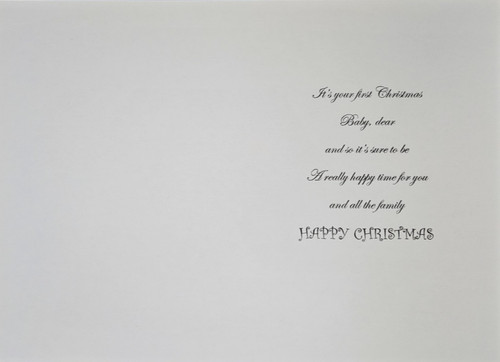 It's your first Christmas
Baby, dear
and so it's sure to be
A really happy time for you
and all the family
HAPPY CHRISTMAS